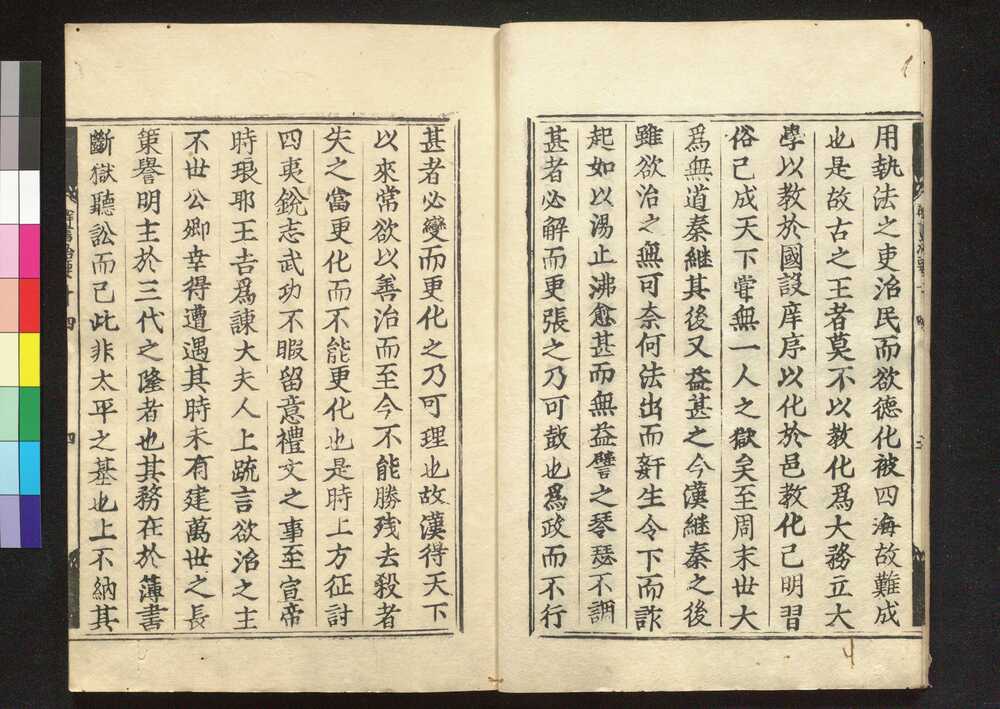 用執法之吏治民而欲德化被四海故難成
也是故古之王者莫不以教化爲大務立大
學以教於國設庠序以化於邑教化已明習
俗已成天下甞無一人之獄矣至周末世大
爲無道秦継其後又益甚之今漢継秦之後
雖欲治之無可奈何法出而姧生令下而詐
起如以湯止沸愈甚而無益譬之琴瑟不調
甚者必解而更張之乃可鼓也爲政而不行
甚者必變而更化之乃可理也故漢得天下
以來常欲以善治而至今不能勝残去殺者
失之當更化而不能更化也是時上方征討
四夷銳志武功不暇留意禮文之事至宣帝
時琅耶王吉爲諫大夫人上疏言欲治之主
不世公卿幸得遭遇其時未有建萬世之長
策譽明主於三代之隆者也其務在於薄書
斷獄聽訟而已此非太平之基也上不納其
十四
四